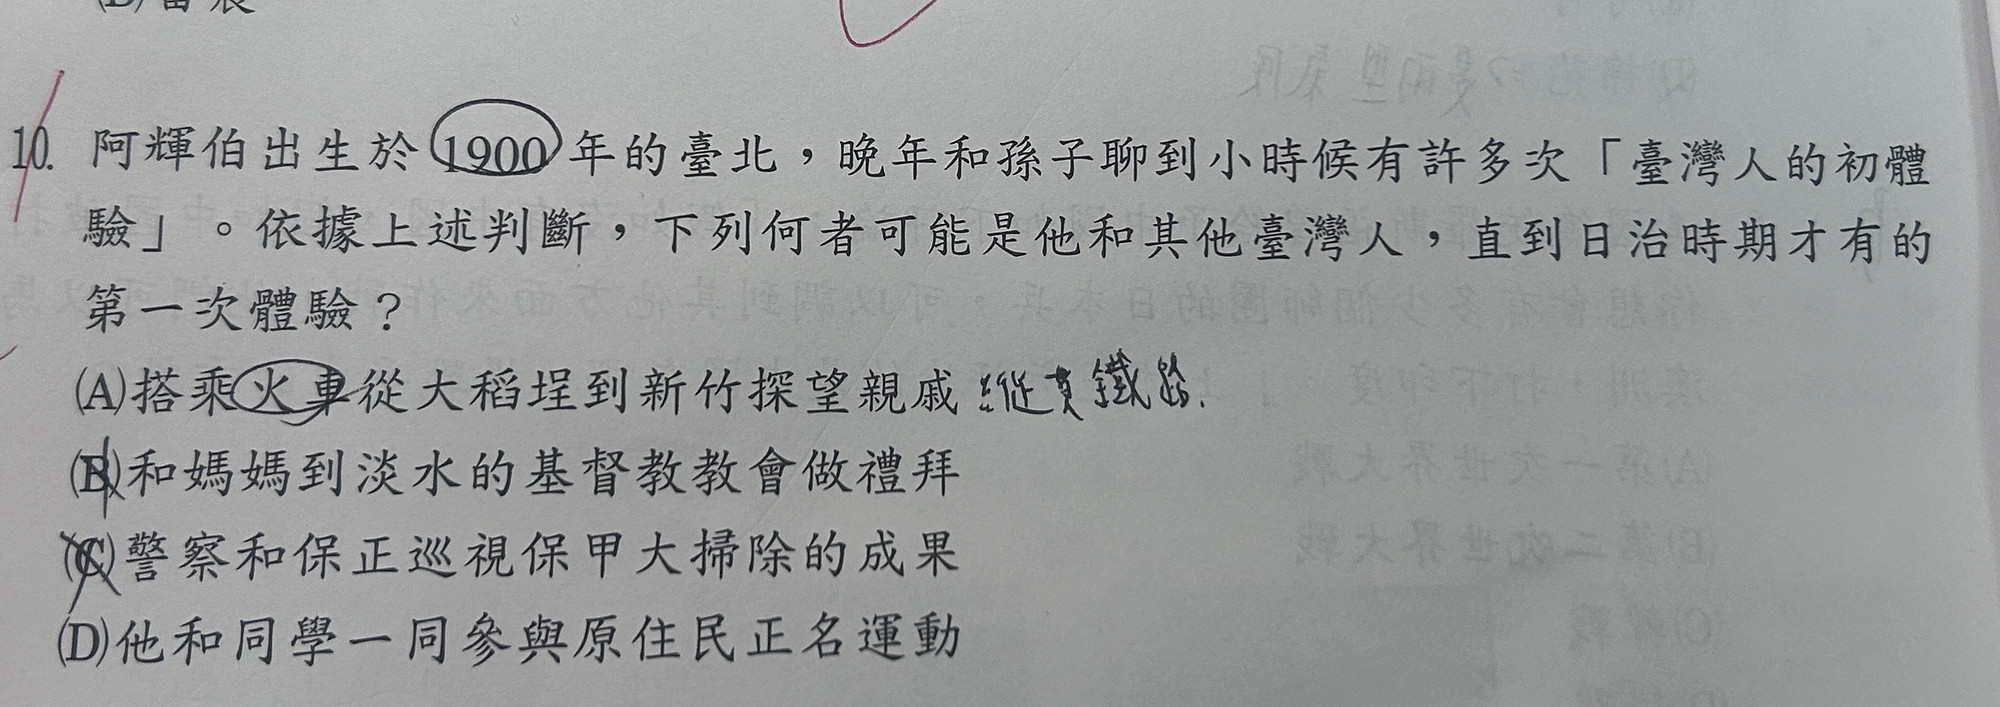 10. 阿輝伯出生於1900年的臺北，晚年和孫子聊到小時候有許多次「臺灣人的初體
驗」。依據上述判斷，下列何者可能是他和其他臺灣人，直到日治時期才有的
第一次體驗？
(A)搭乘火車從大稻埕到新竹探望親戚 縱貫鐵路.
(B)和媽媽到淡水的基督教教會做禮拜
(C)警察和保正巡視保甲大掃除的成果
(D)他和同學一同參與原住民正名運動